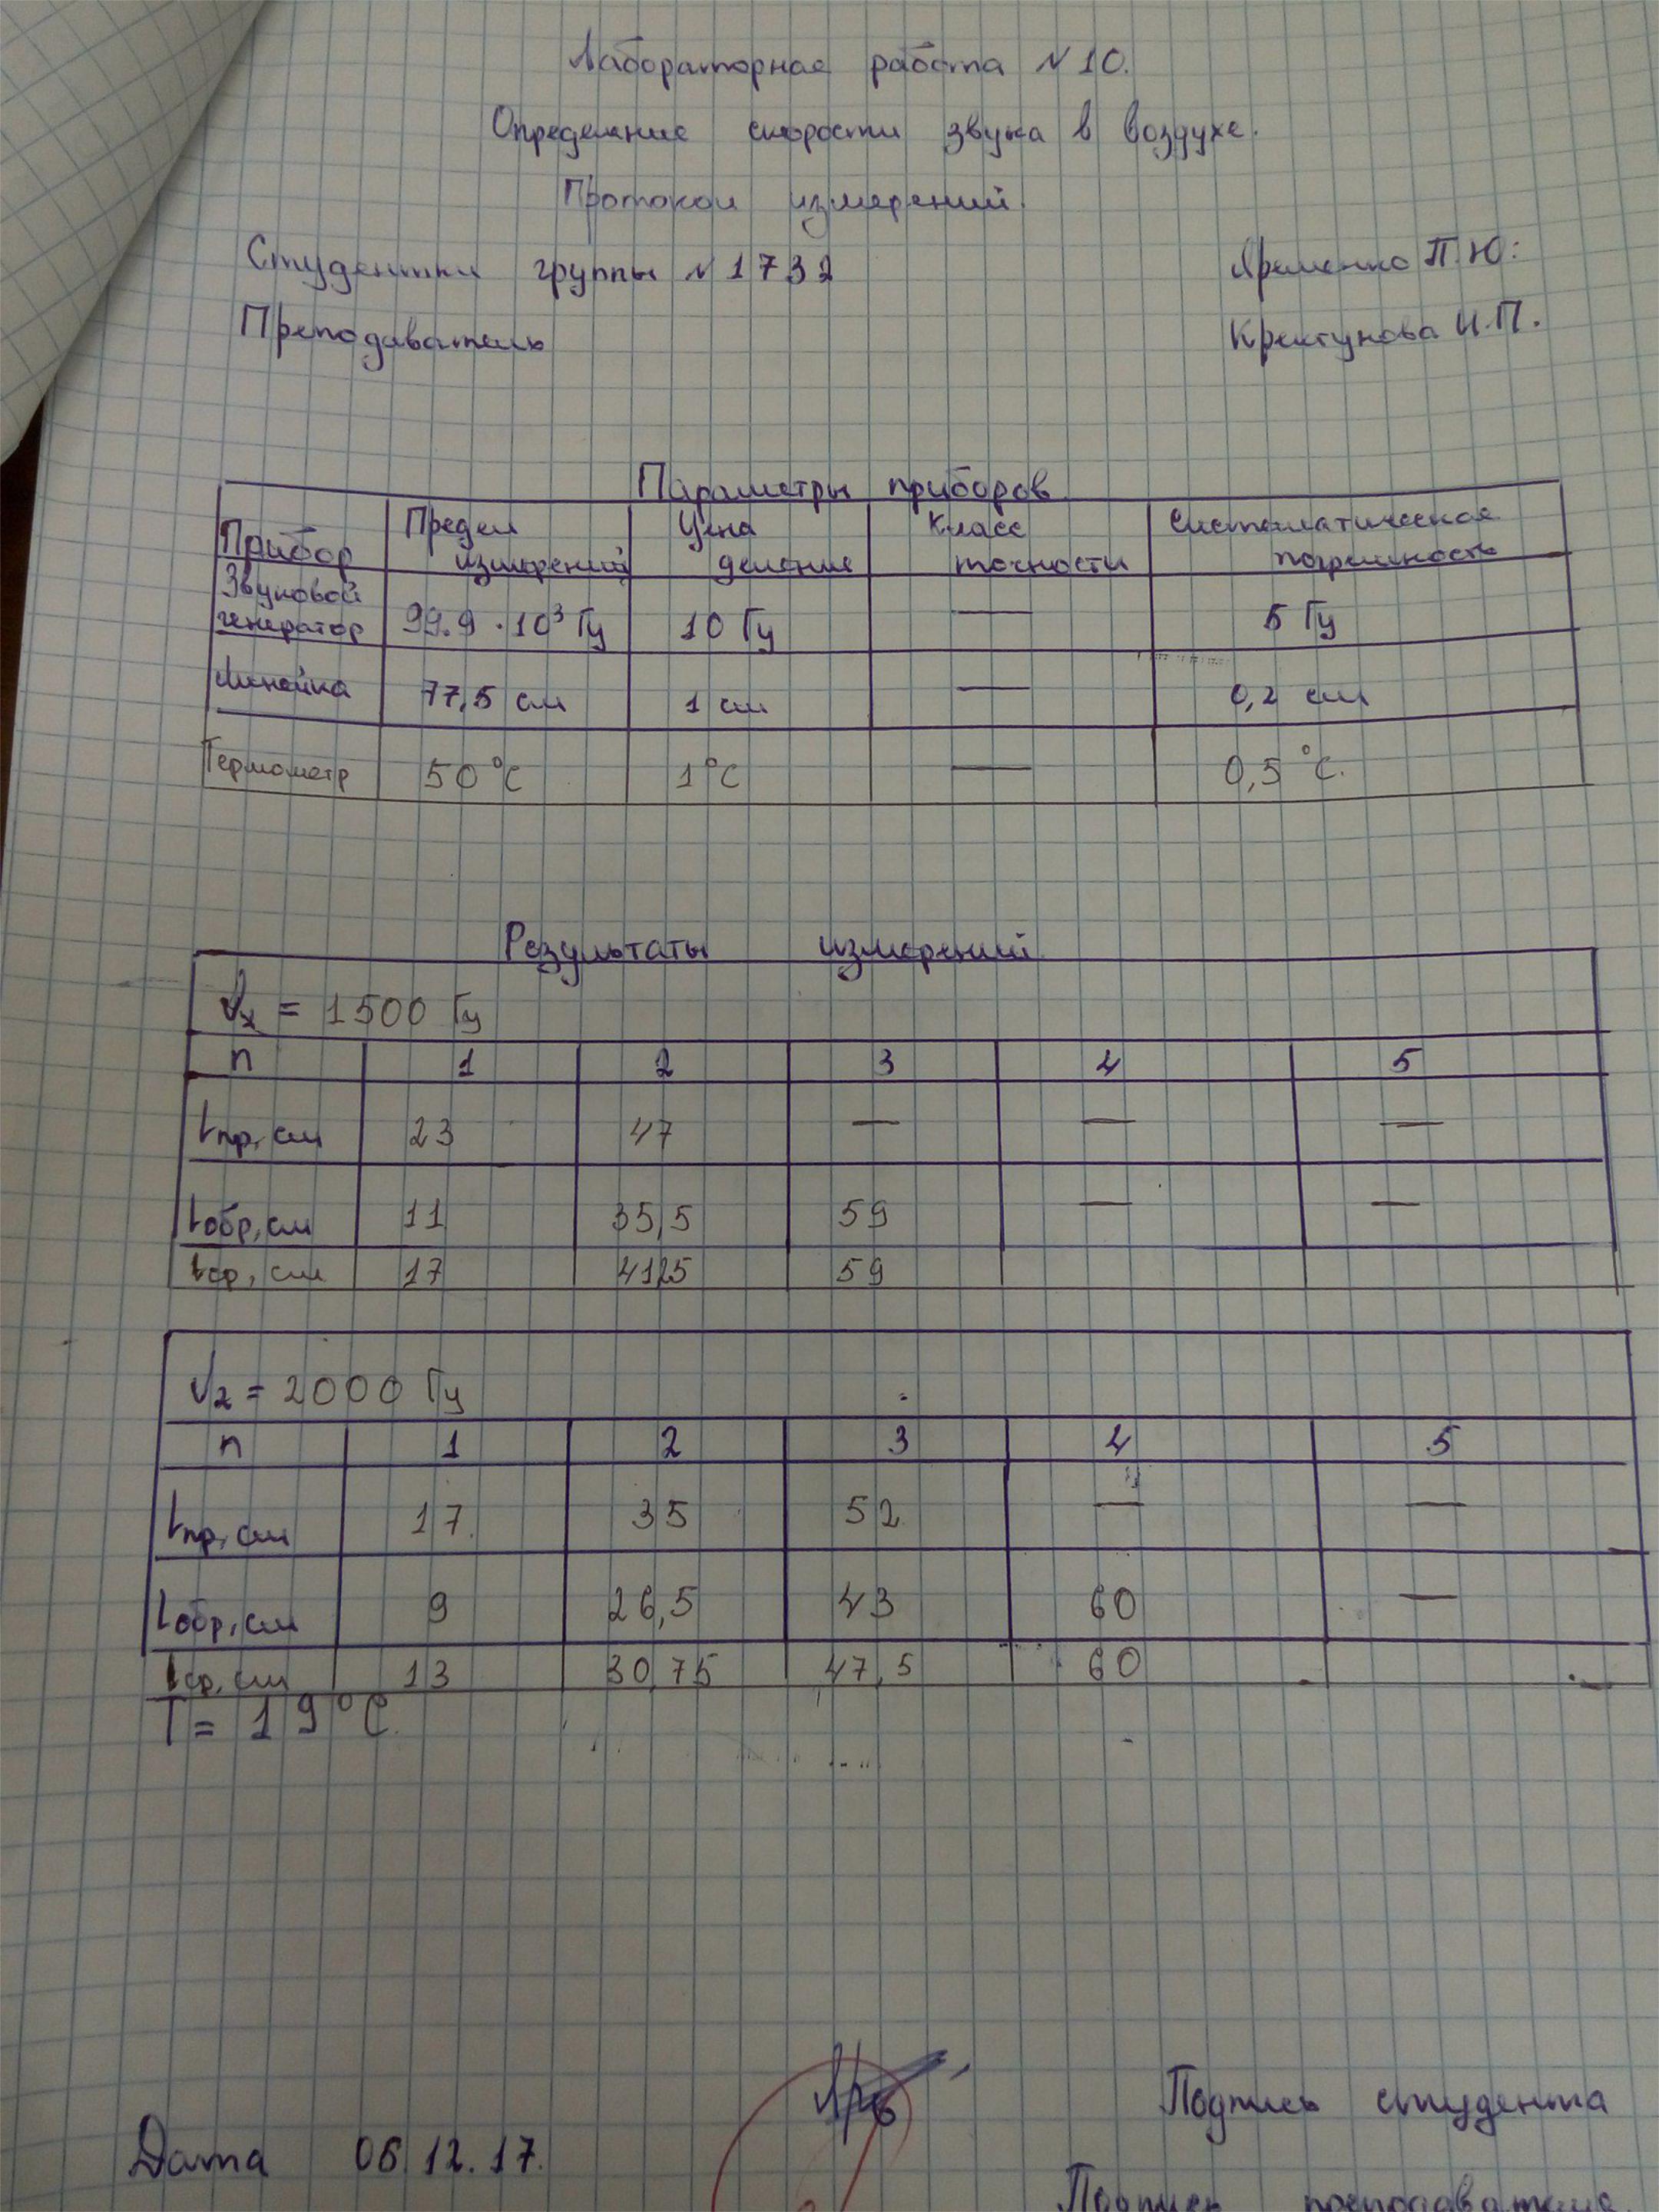 Лабораторная работа №10.
Определение скорости звука в воздухе.
Протокол измерений.
Студентки группы №1732 Яременко П.Ю.
Преподаватель Крехтунова И.П.
Параметры приборов
Прибор Предел измерений Цена деления Класс точности Систематическая погрешность
Звуковой генератор 99.9 · 10³ Гц 10 Гц — 5 Гц
Линейка 77,5 см 1 см — 0,2 см
Термометр 50 °C 1 °C — 0,5 °C.
Результаты измерений
ν₁ = 1500 Гц
n 1 2 3 4 5
lпр, см 23 47 — — —
lобр, см 11 35,5 59 — —
lср, см 17 41,25 59
ν₂ = 2000 Гц
n 1 2 3 4 5
lпр, см 17 35 52 — —
lобр, см 9 26,5 43 60 —
lср, см 13 30,75 47,5 60
T = 19 °C.
Подпись студента
Дата 06.12.17.
Подпись преподавателя